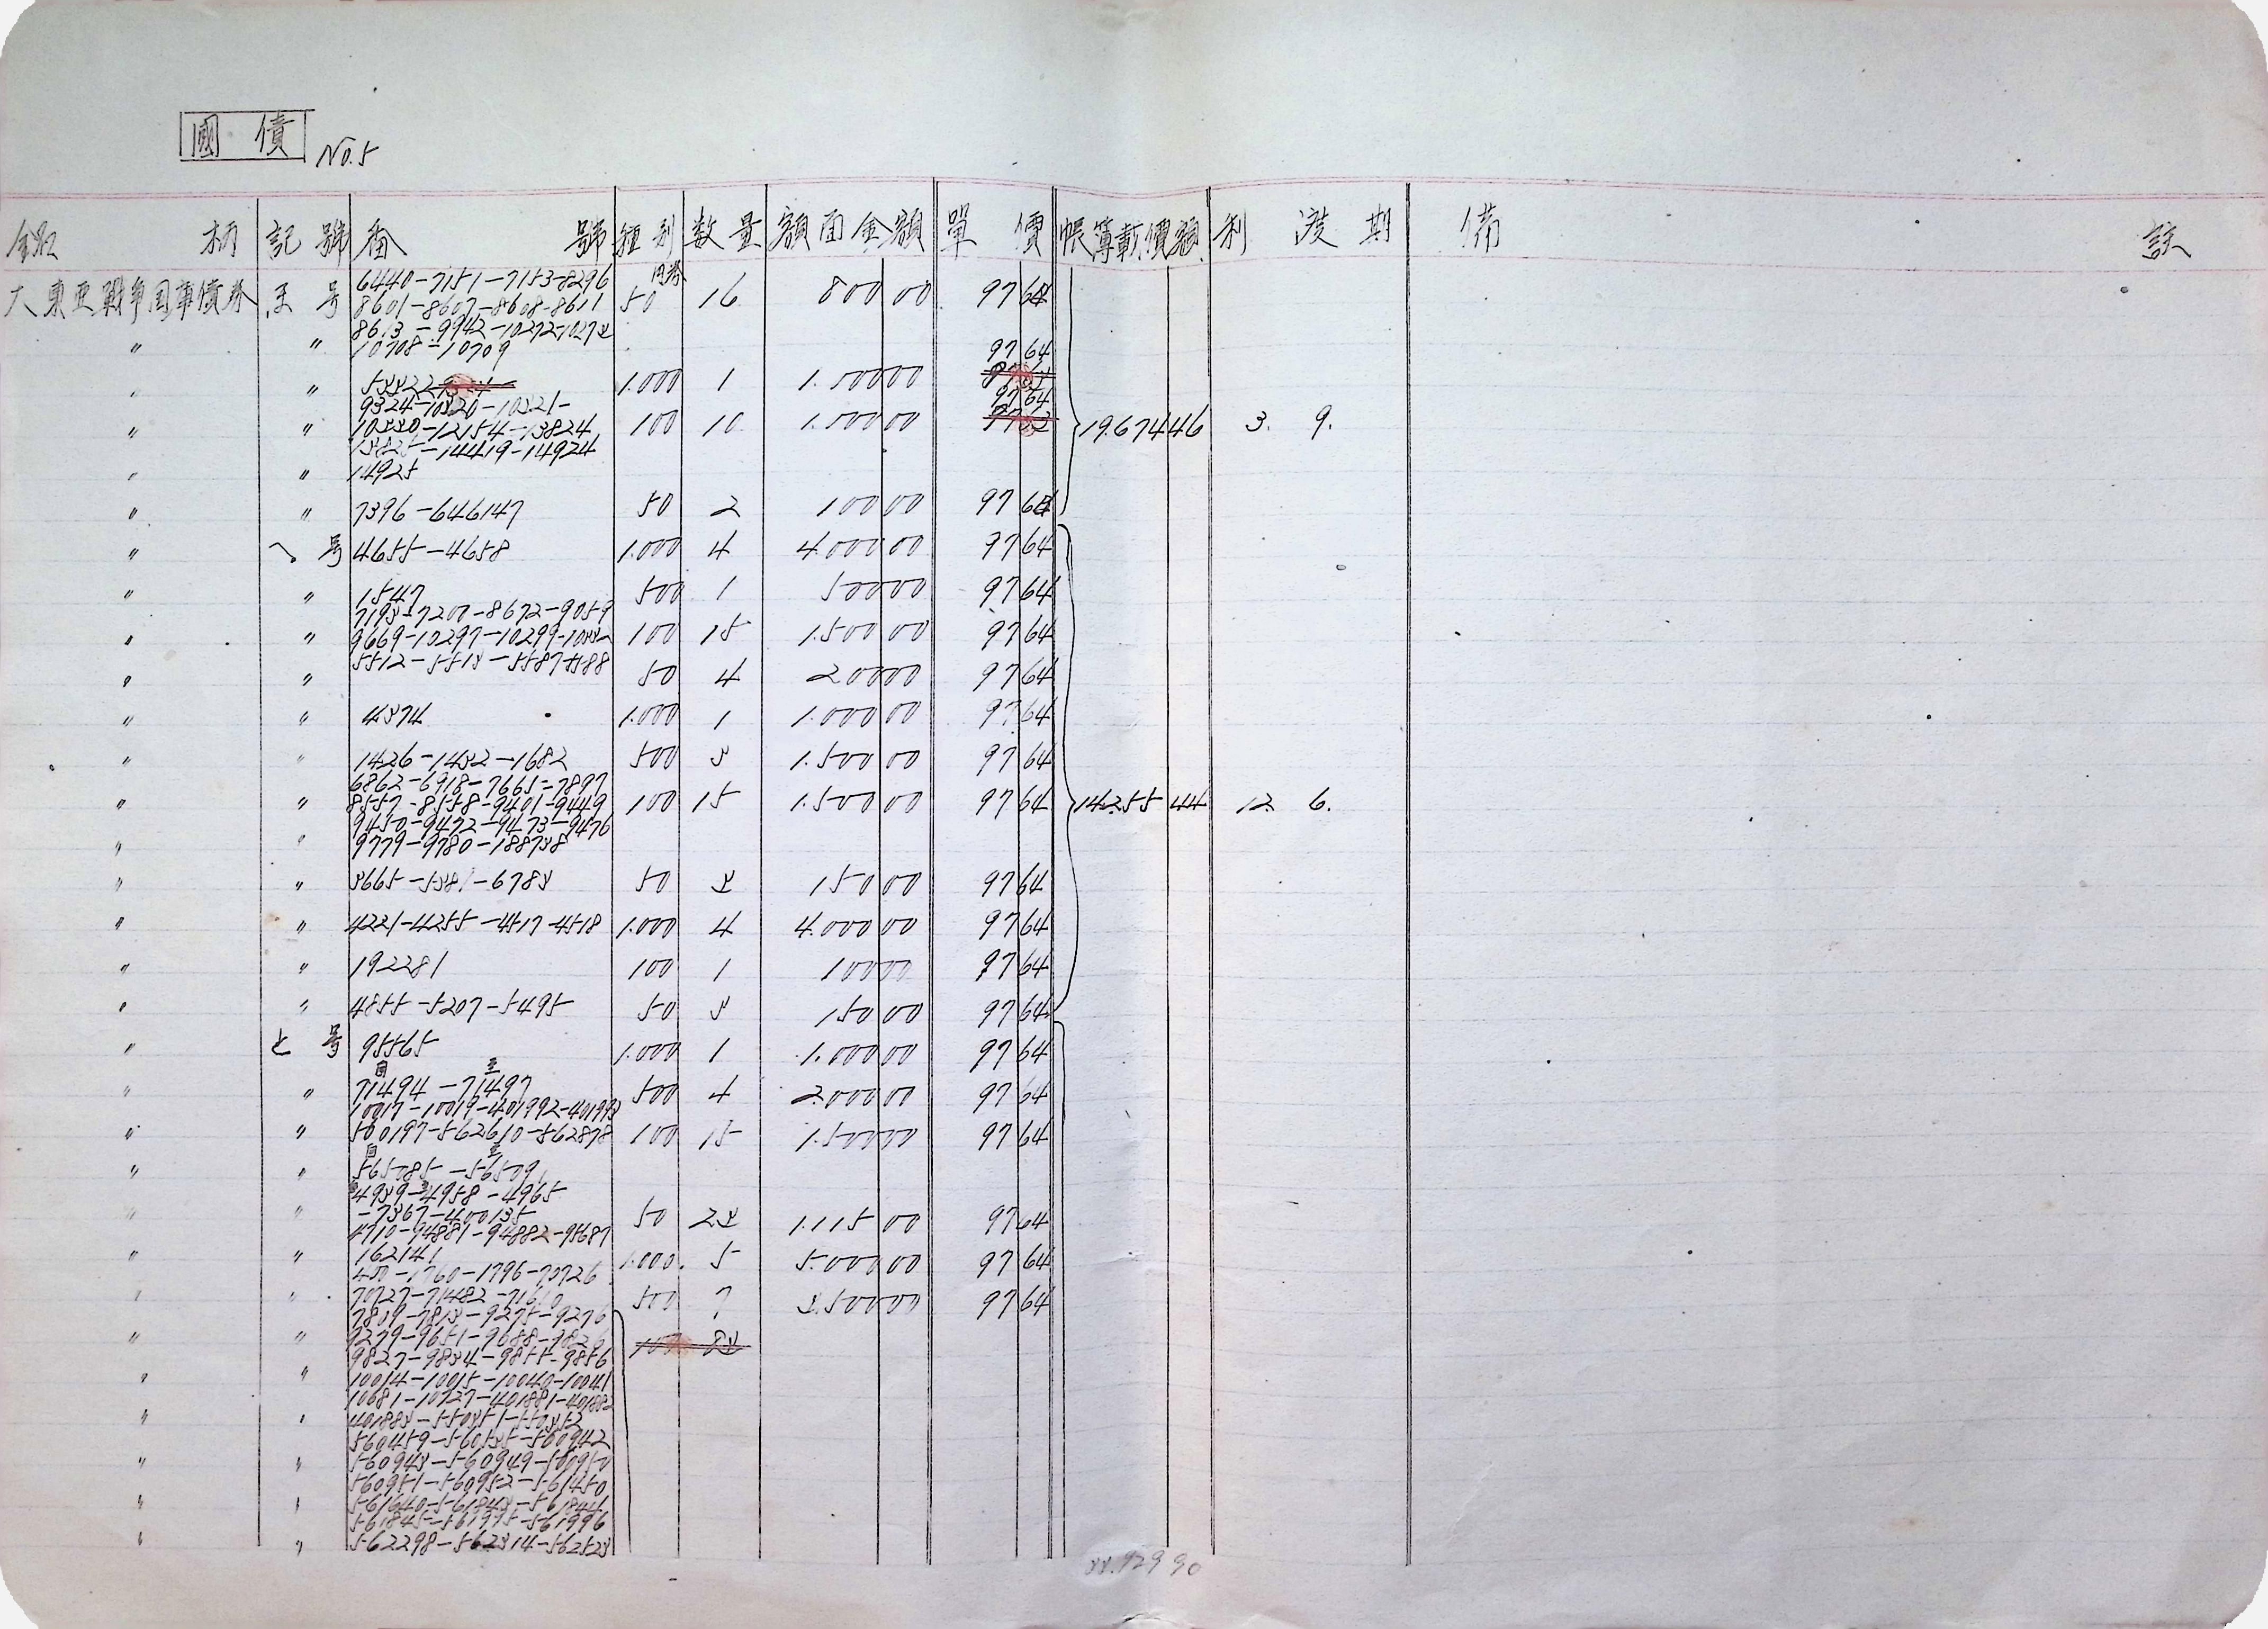 國債 No.5
銘柄 記號 番號 種別 数量 額面金額 單價 帳簿載價額 利渡期 備註
6440-7151-7153-8296 円券
大東亜戦争国庫債券 号 8601-8607-8608-8611 50 16 800 00 97 64
8613-9942-10272-10273
〃 〃 10708-10709 97 64
〃 〃 53322 1.000 1 1.000 00
9324-10320-10321- 97 64
〃 〃 10330-12154-13824 100 10 1.000 00 19.674 46 3. 9.
13825-14419-14924
〃 〃 14925
〃 〃 7396-646147 50 2 100 00 97 64
〃 へ号 4655-4658 1.000 4 4.000 00 97 64
〃 〃 1547 500 1 500 00 97 64
7193-7207-8672-9059
〃 〃 9669-10297-10299-10332 100 15 1.500 00 97 64
5512-5513-5587-5588
〃 〃 50 4 200 00 97 64
〃 〃 4374 1.000 1 1.000 00 97 64
〃 〃 1426-1432-1682 500 3 1.500 00 97 64
6862-6918-7665-7897
〃 〃 8557-8558-9401-9449 100 15 1.500 00 97 64 14.255 44 12. 6.
9450-9472-9473-9476
〃 〃 9779-9780-188738
〃 〃 3665-5381-6783 50 3 150 00 97 64
〃 〃 4221-4255-4517-4518 1.000 4 4.000 00 97 64
〃 〃 192281 100 1 100 00 97 64
〃 〃 4855-5207-5495 50 3 150 00 97 64
〃 と号 95565 1.000 1 1.000 00 97 64
自 至
〃 〃 71494-71497 500 4 2.000 00 97 64
10017-10019-401992-401993
〃 〃 500197-562610-562878 100 15 1.500 00 97 64
自 至
〃 〃 565785-56579
4939-4958-4965
〃 -7367-400135 50 23 1.115 00 97 64
4710-94881-94882-95687
〃 〃 162141 1.000. 5 5.000 00 97 64
400-1760-1796-70726
〃 〃 70727-71482- 500 7 3.500 00 97 64
7809-7813-9275-9276
〃 〃 9279-9651-9688-9826 100 83
9827-9834-9855-9856
〃 〃 10014-10015-10040-10041
10681-10727-401881-401882
〃 〃 401883-550351-550352
560459-560535-560942
〃 〃 560943-560949-560950
560951-560952-561450
〃 〃 561640-561843-561844
561845-561995-561996
〃 〃 562298-562314-562523
33.929 90